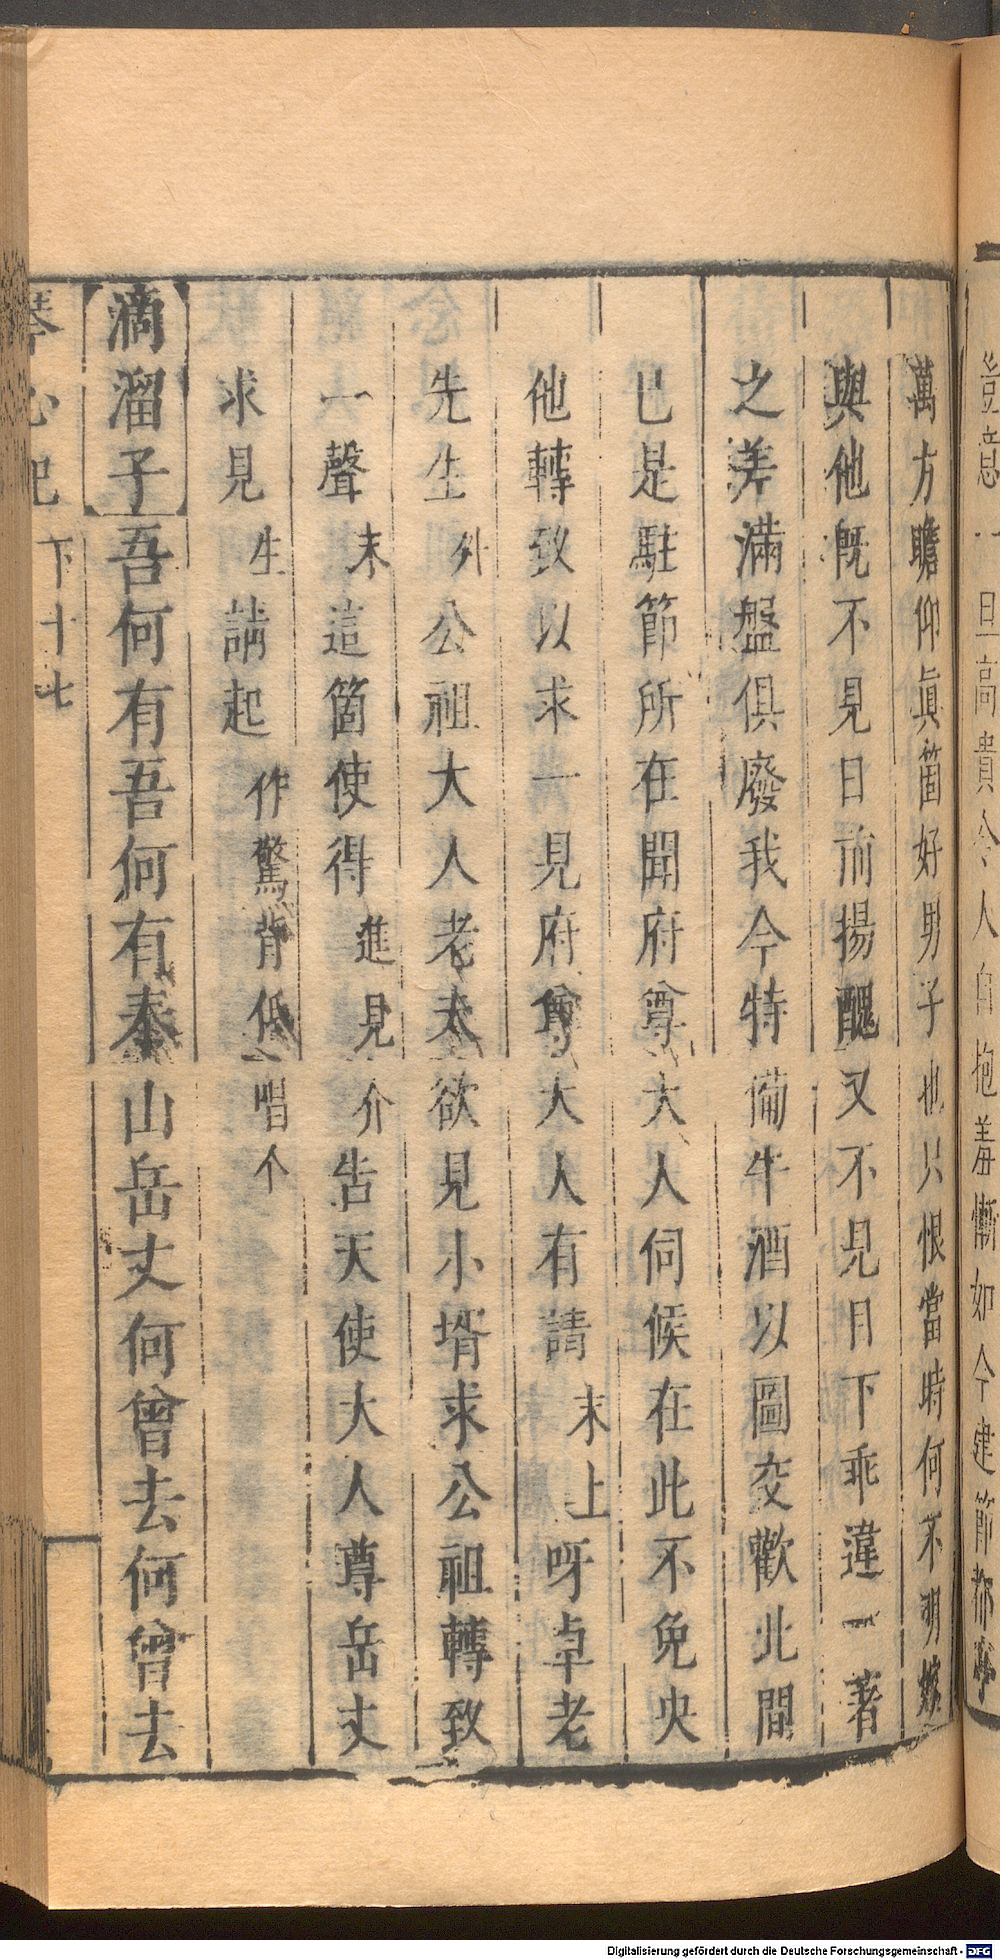 豈意一旦高貴令人自抱羞慚如今建節
萬方瞻仰眞箇好男子也只恨當時何不明嫁
與他旣不見日前揚醜又不見月下乖違一著
之差滿盤俱廢我今特備牛酒以圖交歡此間
已是駐節所在聞府尊大人伺候在此不免央
他轉致以求一見府尊大人有請末上呀卓老
先生外公祖大人老夫欲見小壻求公祖轉致
一聲末這箇使得進見介告天使大人尊岳丈
求見生請起作驚背低唱介
滴溜子吾何有吾何有泰山岳丈何曾去何曾去
琴心記 下十七
Digitalisierung gefördert durch die Deutsche Forschungsgemeinschaft - DFG